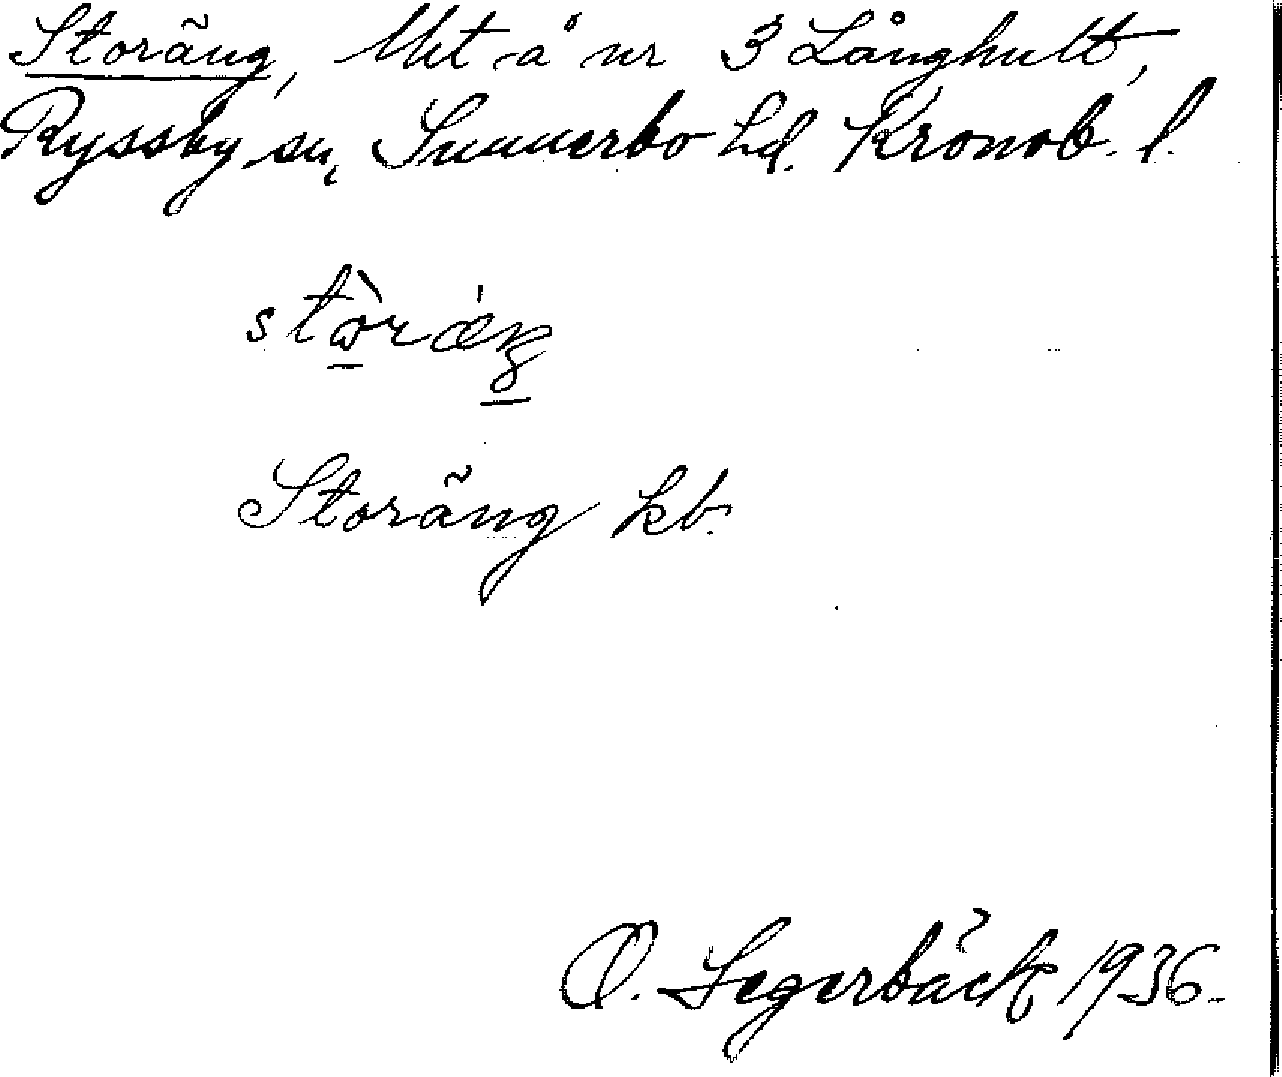 Storäng, Ukt å nr 3 Långhult,
Ryssby sn, Sunnerbo hd. Kronob. l.
Storäng kb.
O. Segerbäck 1936.